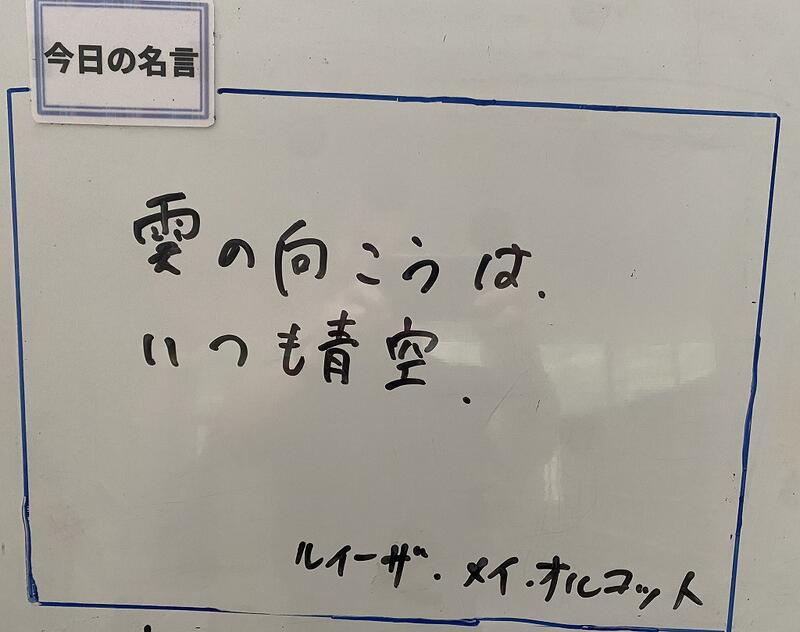 今日の名言
雲の向こうは.
いつも青空.
ルイーザ.メイ.オルコット